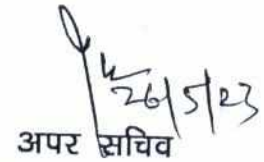 26/5/23
अपर सचिव